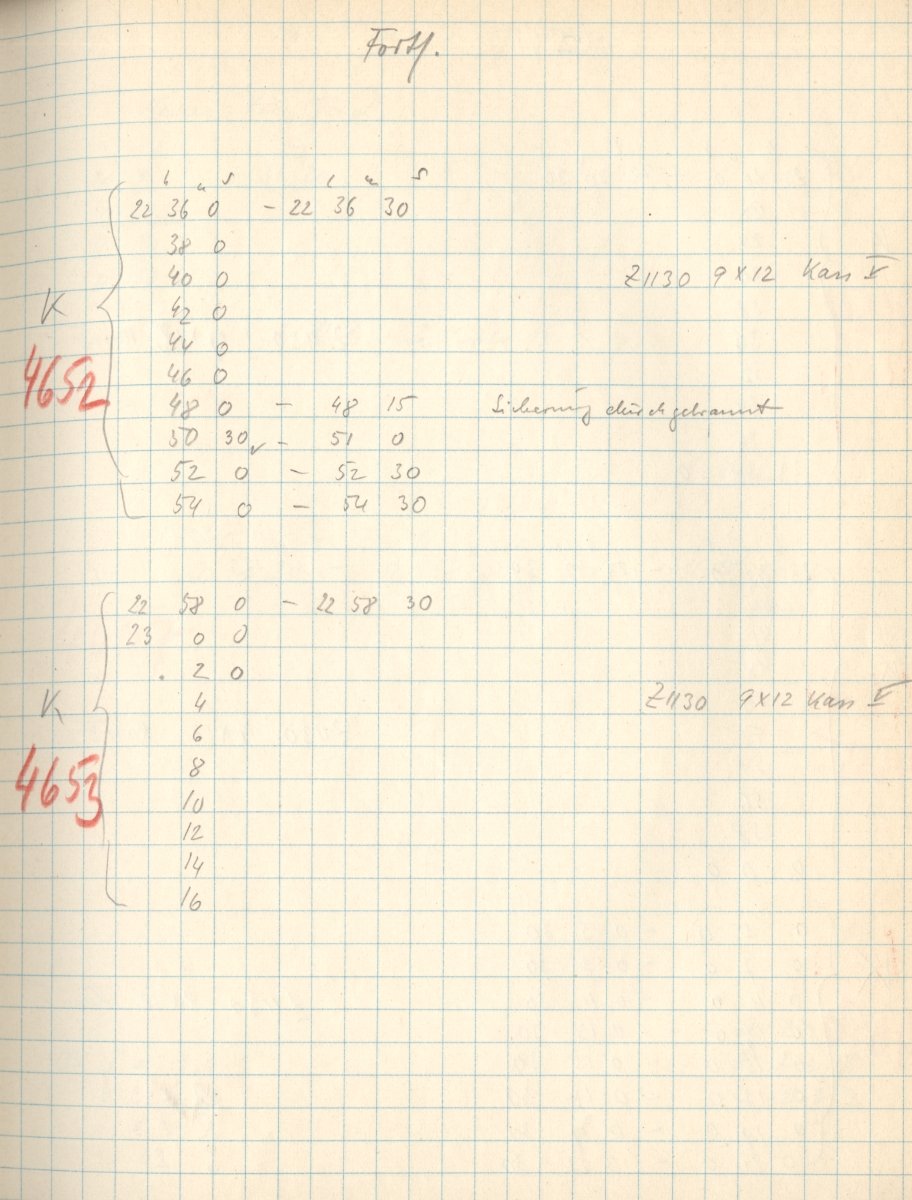 Fortf.
h m s h m s
22 36 0 – 22 36 30
38 0
40 0 Z1130 9×12 Kass V
K 42 0
44 0
4652 46 0
48 0 – 48 15 Sicherung durchgebrannt
50 30 – 51 0
52 0 – 52 30
54 0 – 54 30
22 58 0 – 22 58 30
23 0 0
. 2 0
K 4 Z1130 9×12 Kass V
6
4653 8
10
12
14
16